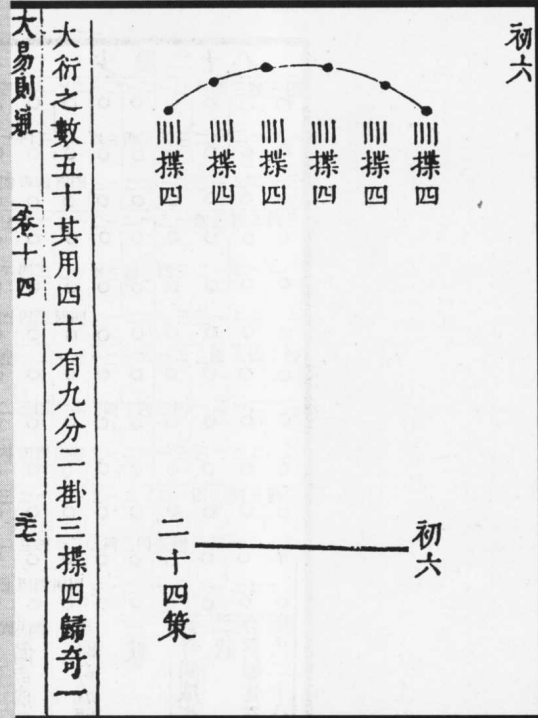 初六
揲四
揲四
揲四
揲四
揲四
揲四
初六
二十四策
大衍之數五十其用四十有九分二掛三揲四歸奇一
大易則通 卷十四